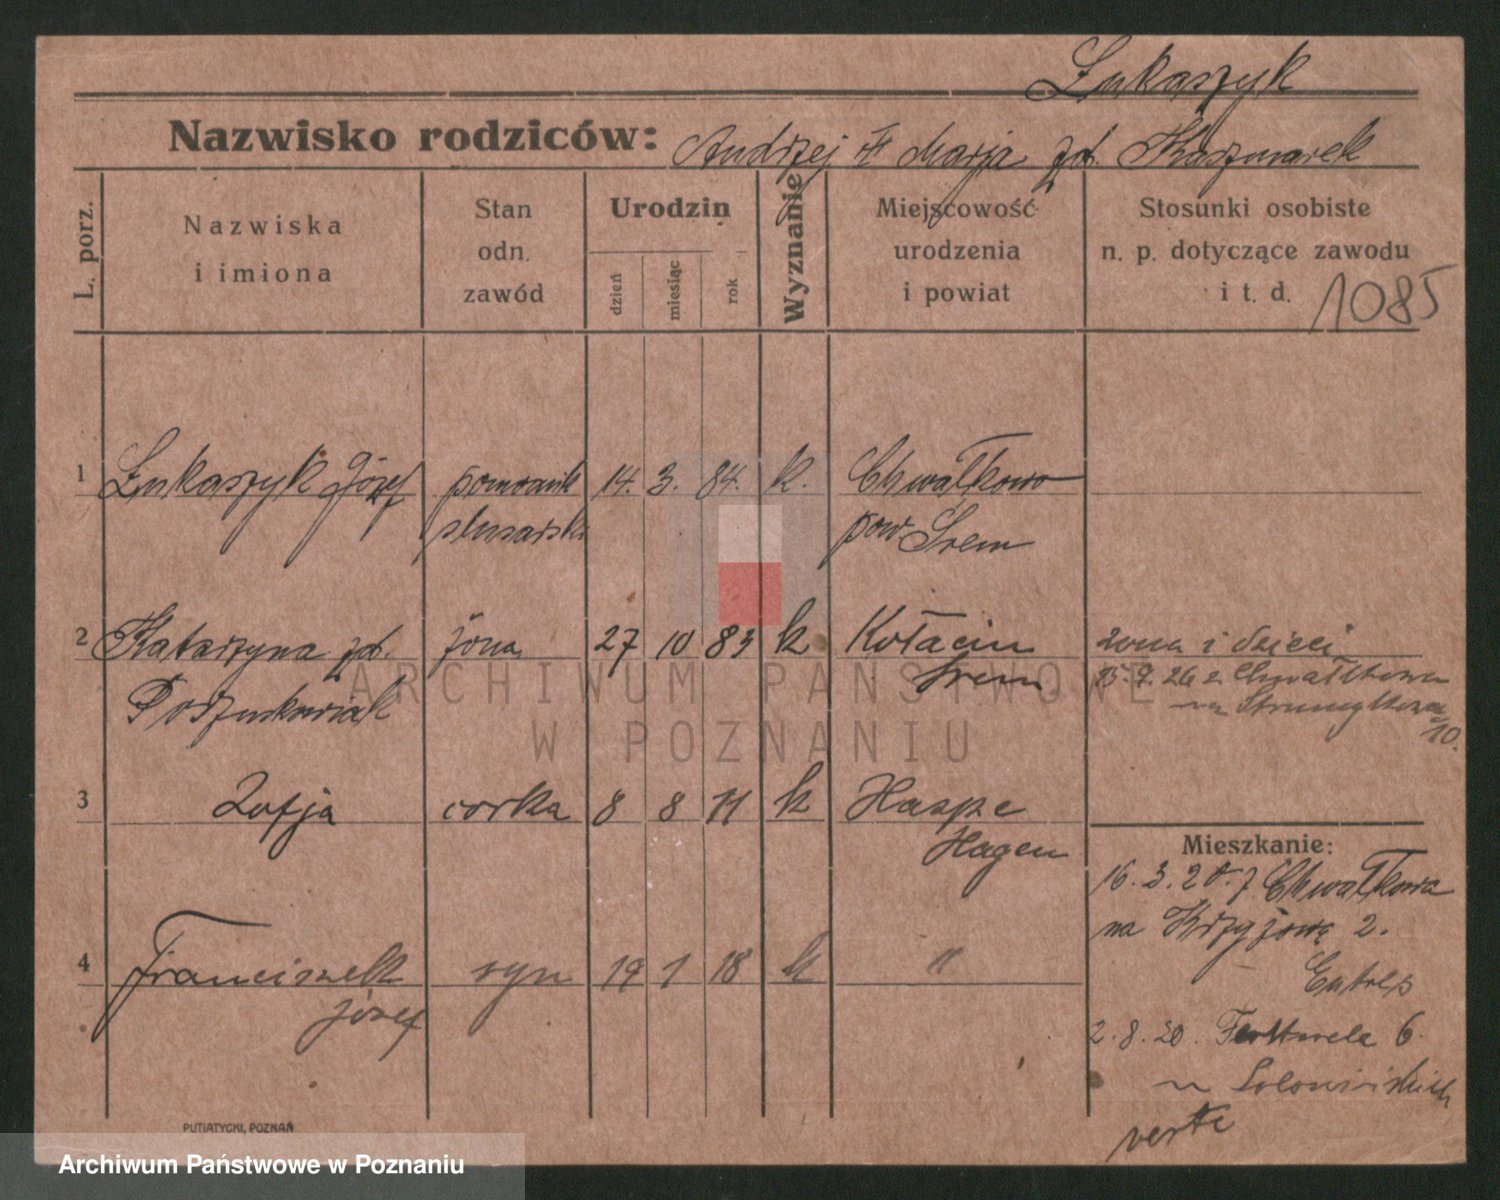 Łukaszyk
Nazwisko rodziców: Andrzej i Marja zd. Kaszmarek
L. porz.
Nazwiska
i imiona
Stan
odn.
zawód
Urodzin
dzień
miesiąc
rok
Wyznanie
Miejscowość
urodzenia
i powiat
Stosunki osobiste
n. p. dotyczące zawodu
i t. d.
1085
1 Łukaszyk Józef pomocnik 14. 3. 84. k. Chwałkowo
ślusarski pow Śrem
2 Katarzyna zd. żona 27 10 83 k Kołacin żona i dzieci
Śrem 26 z Chwałkowa
na
10.
3 Zofja corka 8 8 11 k Haspe
Hagen
4 Franciszek syn 19 1 18 k "
Józef
Mieszkanie:
16. 3. 20. z Chwałkowa
na Krzyżową 2.
2. 8. 20. 6.
u
verte
PUTIATYCKI, POZNAŃ
ARCHIWUM PAŃSTWOWE
W POZNANIU
Archiwum Państwowe w Poznaniu